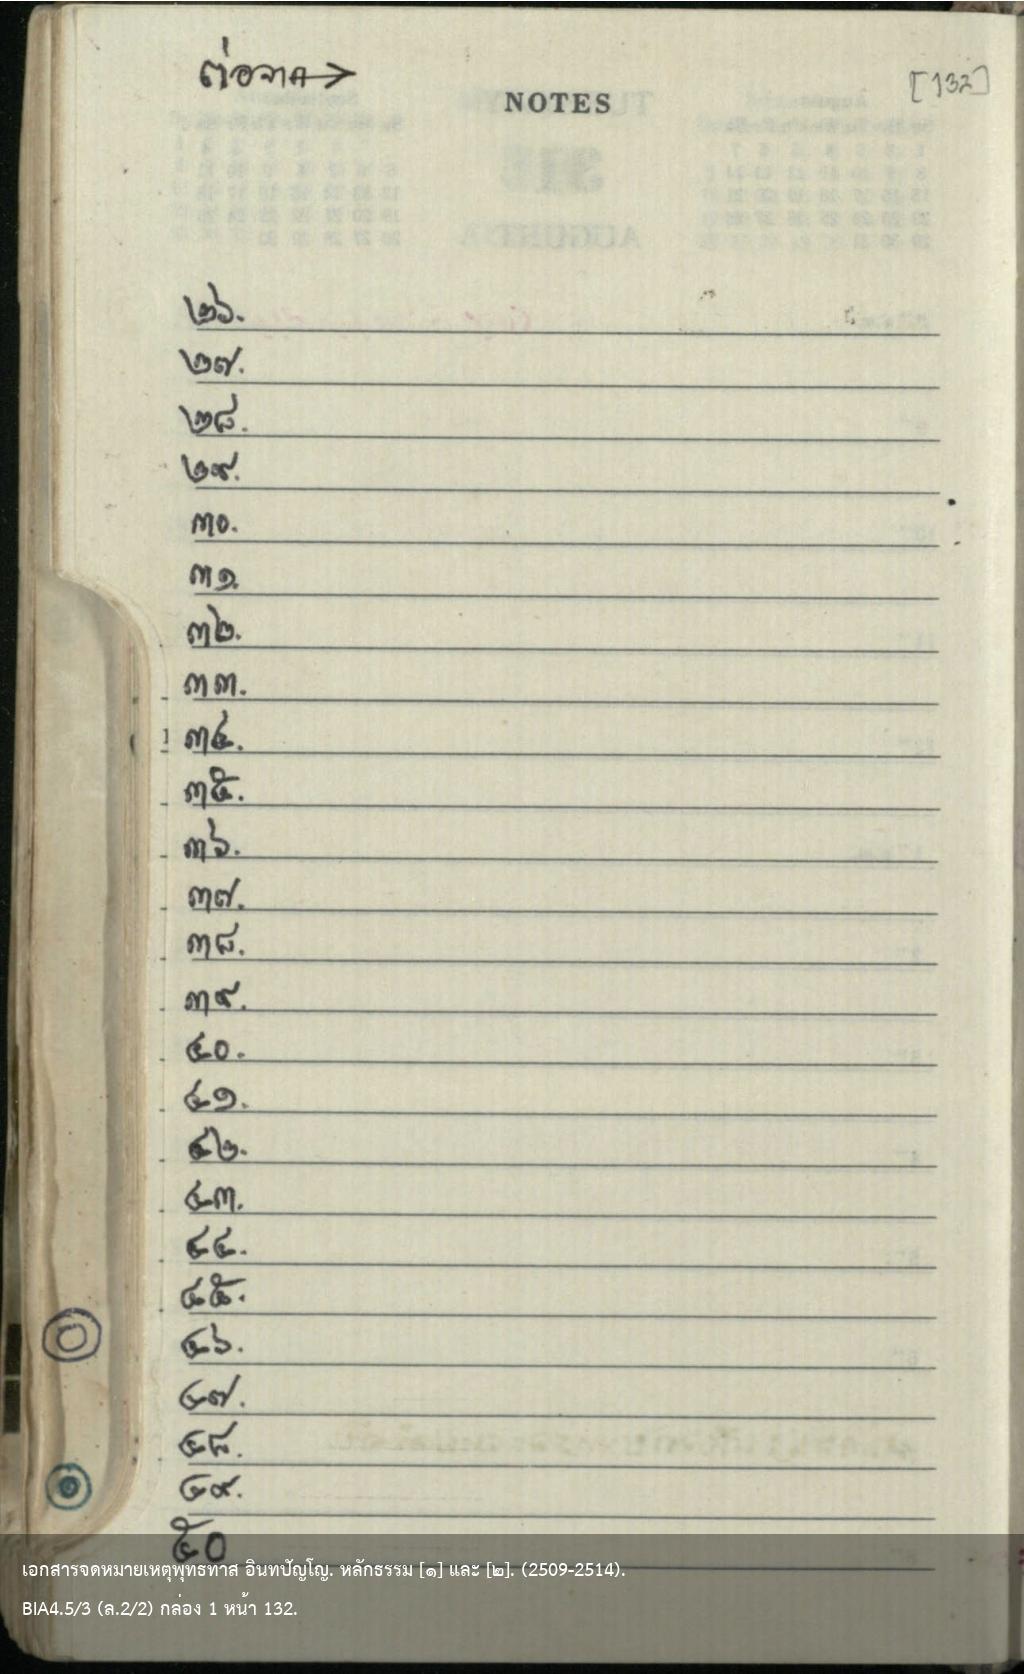 ต่อจาก →
[132]
NOTES
๒๖.
๒๗.
๒๘.
๒๙.
๓๐.
๓๑.
๓๒.
๓๓.
๓๔.
๓๕.
๓๖.
๓๗.
๓๘.
๓๙.
๔๐.
๔๑.
๔๒.
๔๓.
๔๔.
๔๕.
๔๖.
๔๗.
๔๘.
๔๙.
๕๐
เอกสารจดหมายเหตุพุทธทาส อินทปัญโญ. หลักธรรม [๑] และ [๒]. (2509-2514).
BIA4.5/3 (ล.2/2) กล่อง 1 หน้า 132.